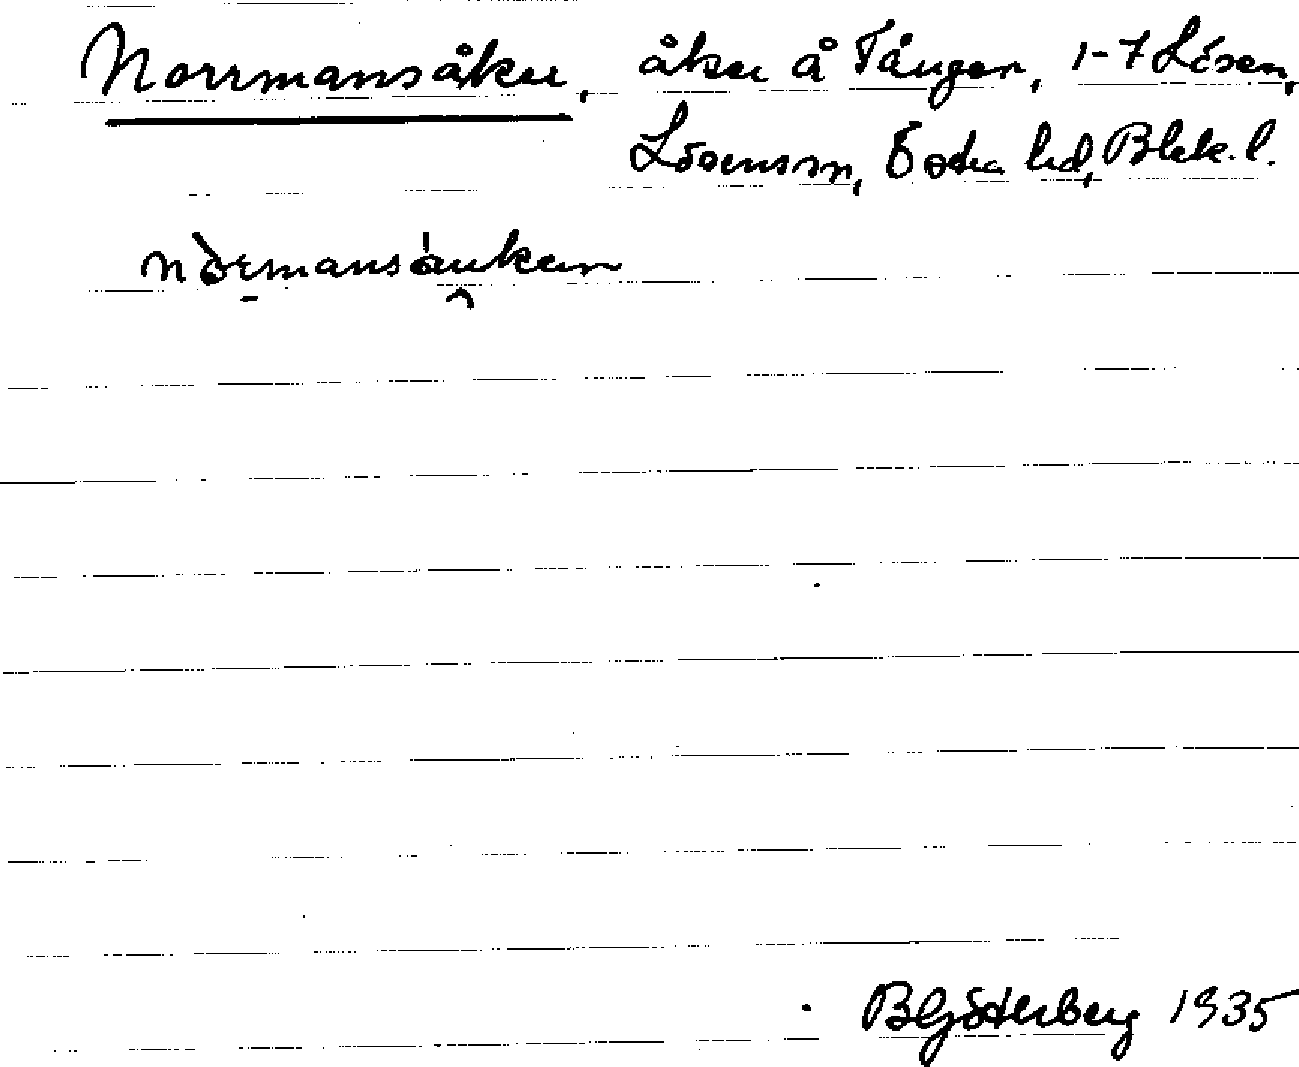 Norrmansåker, åker å Tången, 1-7 Lösen,
Lösens sn, Östra hd, Blek. l.
nòrmansåuken
B Götterberg 1935